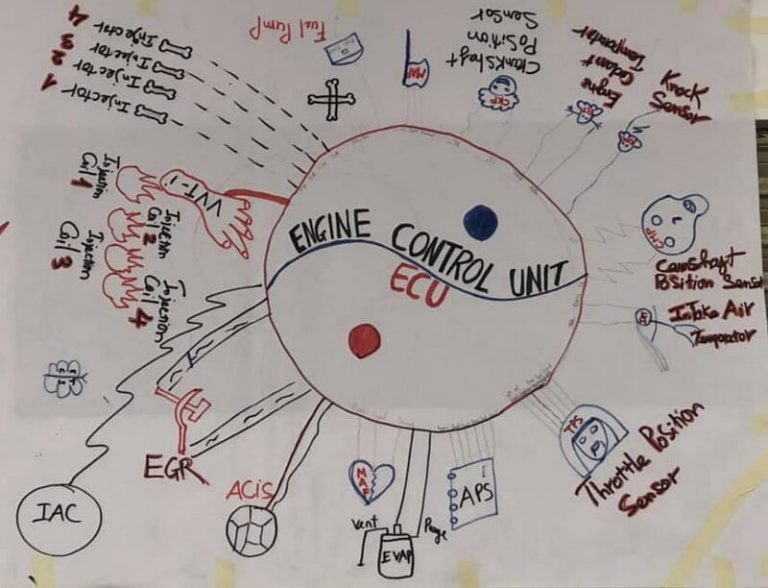 ENGINE CONTROL UNIT
ECU
Fuel Pump
MAP
Crankshaft
Position
Sensor
CKP
Engine
Coolant
Temparator
Knock
Sensor
CMP
Camshaft
Position Sensor
Intake Air
Temparator
TPS
Throttle Position
Sensor
APS
EVAP
Vent
Purge
MAF
ACiS
EGR
IAC
VVT-i
Injector 1
Injector 2
Injector 3
Injector 4
Injection
Coil 1
Injection
Coil 2
Injection
Coil 3
Injection
Coil 4